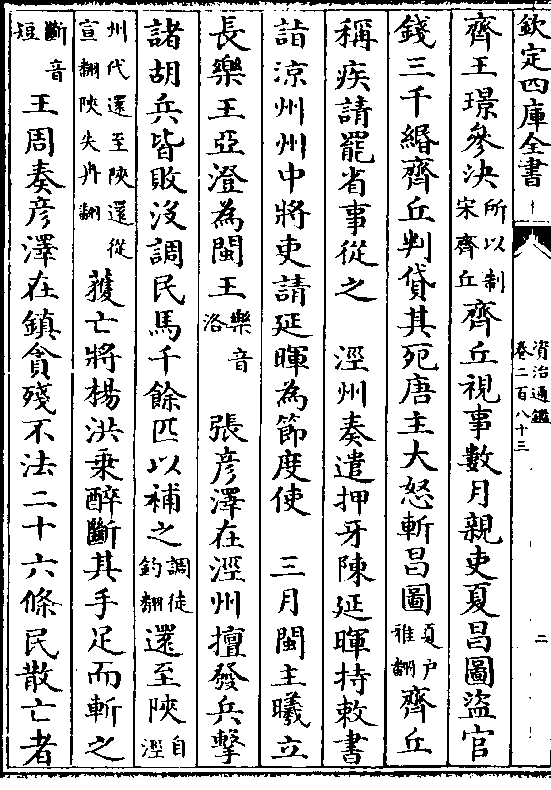 欽定四庫全書
資治通鑑
卷二百八十三
二
齊王璟參決所以制宋齊丘齊丘視事數月親吏夏昌圖盜官
錢三千緡齊丘判貸其死唐主大怒斬昌圖夏户雅翻齊丘
稱疾請罷省事從之 涇州奏遣押牙陳延暉持敕書
詣涼州州中將吏請延暉為節度使 三月閩主曦立
長樂王亞澄為閩王樂音洛 張彥澤在涇州擅發兵擊
諸胡兵皆敗没調民馬千餘匹以補之調徒釣翻還至陝自涇
州代還至陝還從宣翻陝失冉翻獲亡將楊洪乘醉斷其手足而斬之
斷音短王周奏彥澤在鎮貪殘不法二十六條民散亡者